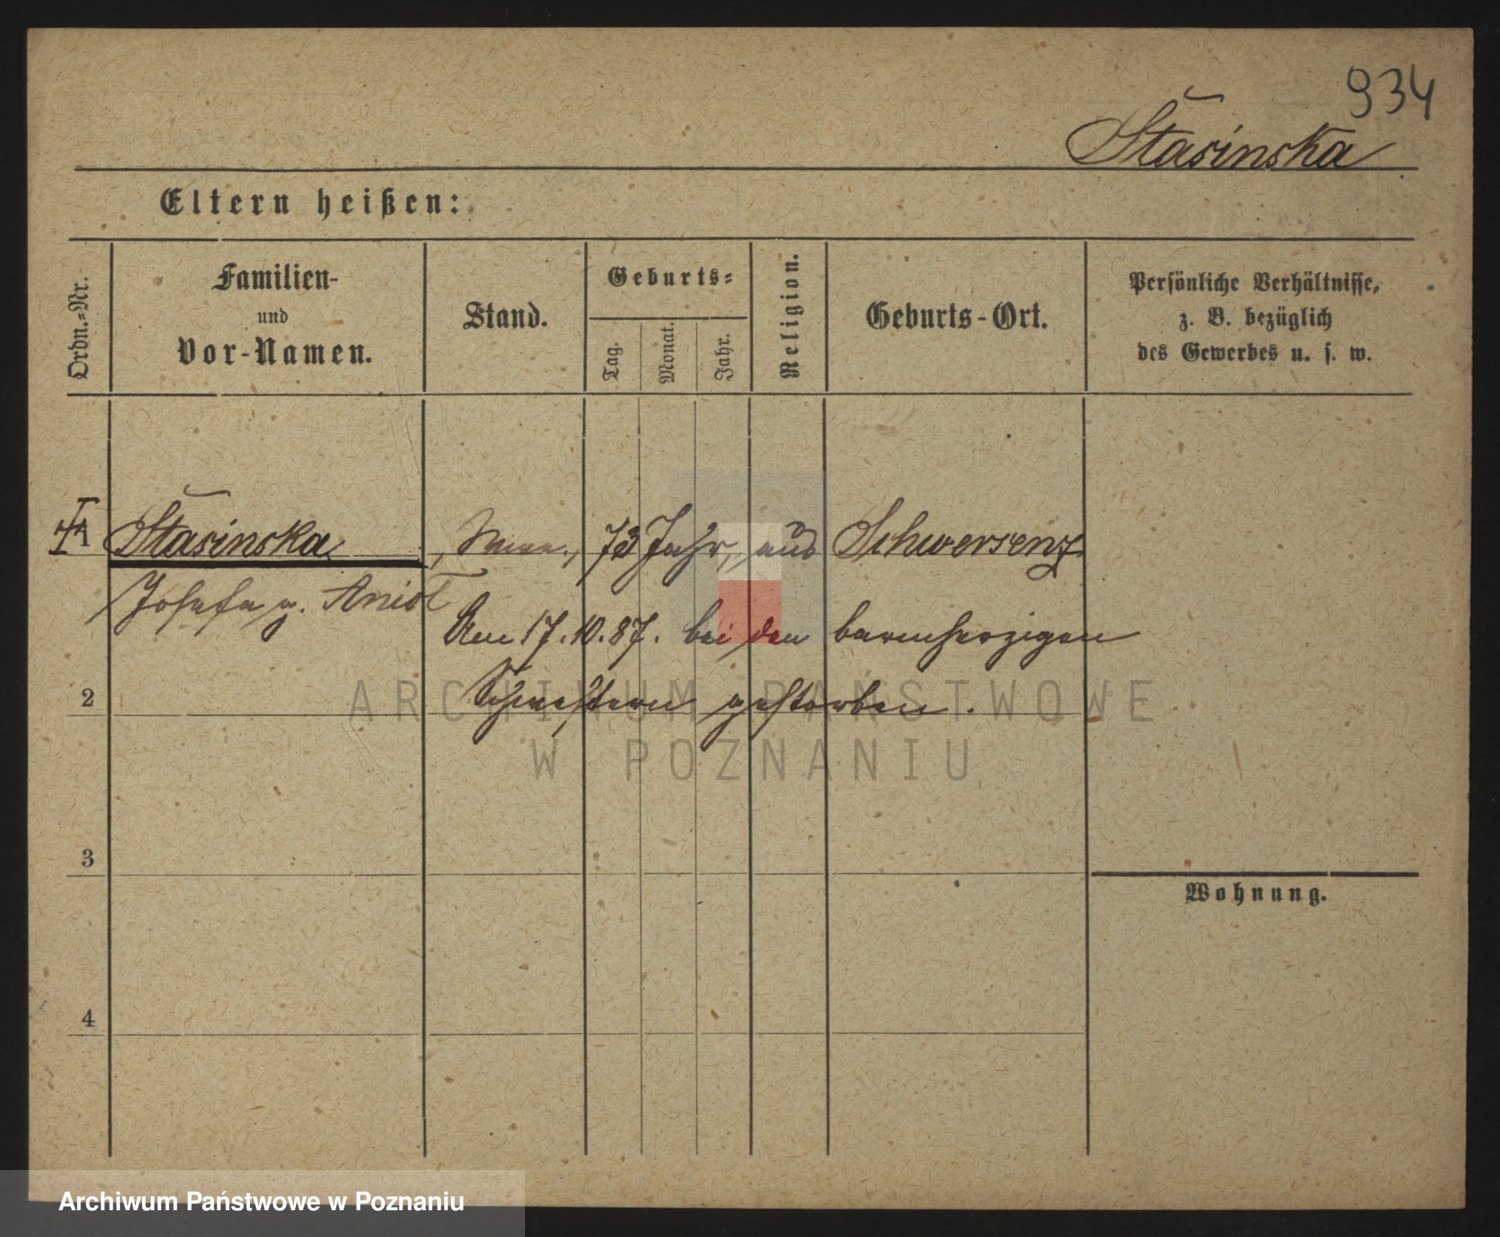 934
Stasinska
Eltern heißen:
Ordn.-Nr.
Familien-
und
Vor-Namen.
Stand.
Geburts-
Tag.
Monat.
Jahr.
Religion.
Geburts-Ort.
Persönliche Verhältnisse,
z. B. bezüglich
des Gewerbes u. s. w.
1 Stasinska, 73 Jahr, aus Schwersenz
Josefa g. Aniol
Am 17.10.87. bei den barmherzigen
Schwestern gestorben.
2
3
Wohnung.
4
ARCHIWUM PAŃSTWOWE
W POZNANIU
Archiwum Państwowe w Poznaniu